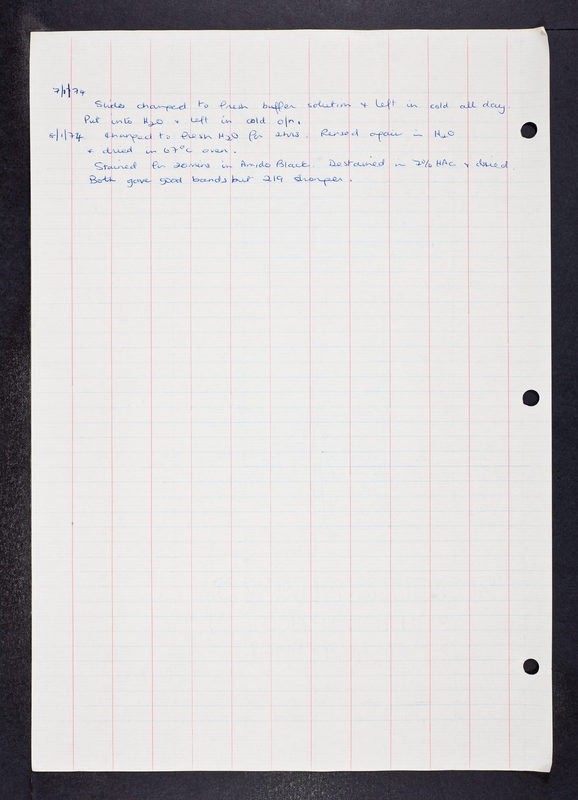 7/1/74
Slides changed to fresh buffer solution & left in cold all day.
Put into H2O & left in cold o/n.
8/1/74 Changed to fresh H2O for 2hrs. Rinsed again in H2O
& dried in 67°c oven.
Stained for 20mins in Amido Black. Destained in 7% HAc & dried
Both gave good bands but 219 sharper.